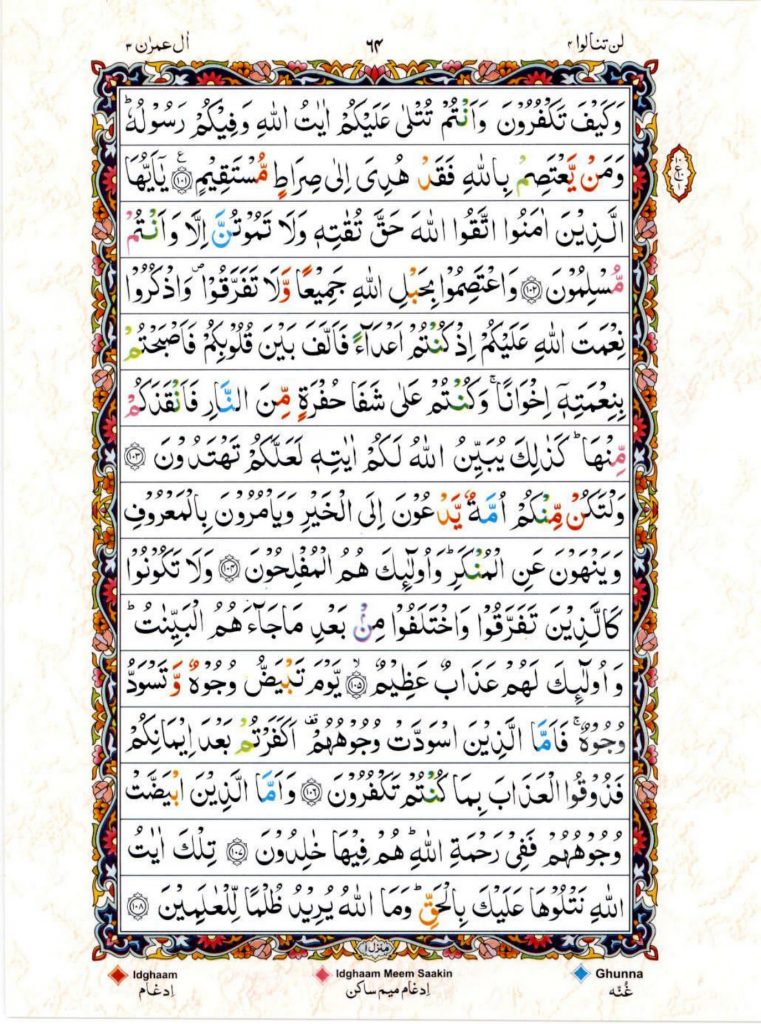 لن تنالوا ۴ ٦۴ اٰل عمرٰن ۳
وَكَيْفَ تَكْفُرُوْنَ وَاَنْتُمْ تُتْلٰى عَلَيْكُمْ اٰيٰتُ اللّٰهِ وَفِيْكُمْ رَسُوْلُهٗ ؕ
وَمَنْ يَّعْتَصِمْ بِاللّٰهِ فَقَدْ هُدِىَ اِلٰى صِرَاطٍ مُّسْتَقِيْمٍ ۝۱۰۱ ع يٰۤاَيُّهَا
الَّذِيْنَ اٰمَنُوا اتَّقُوا اللّٰهَ حَقَّ تُقٰتِهٖ وَلَا تَمُوْتُنَّ اِلَّا وَاَنْتُمْ
مُّسْلِمُوْنَ ۝۱۰۲ وَاعْتَصِمُوْا بِحَبْلِ اللّٰهِ جَمِيْعًا وَّلَا تَفَرَّقُوْا ۪ وَاذْكُرُوْا
نِعْمَتَ اللّٰهِ عَلَيْكُمْ اِذْ كُنْتُمْ اَعْدَآءً فَاَلَّفَ بَيْنَ قُلُوْبِكُمْ فَاَصْبَحْتُمْ
بِنِعْمَتِهٖۤ اِخْوَانًا ۚ وَكُنْتُمْ عَلٰى شَفَا حُفْرَةٍ مِّنَ النَّارِ فَاَنْقَذَكُمْ
مِّنْهَا ؕ كَذٰلِكَ يُبَيِّنُ اللّٰهُ لَكُمْ اٰيٰتِهٖ لَعَلَّكُمْ تَهْتَدُوْنَ ۝۱۰۳
وَلْتَكُنْ مِّنْكُمْ اُمَّةٌ يَّدْعُوْنَ اِلَى الْخَيْرِ وَيَاْمُرُوْنَ بِالْمَعْرُوْفِ
وَيَنْهَوْنَ عَنِ الْمُنْكَرِ ؕ وَاُولٰٓئِكَ هُمُ الْمُفْلِحُوْنَ ۝۱۰۴ وَلَا تَكُوْنُوْا
كَالَّذِيْنَ تَفَرَّقُوْا وَاخْتَلَفُوْا مِنْۢ بَعْدِ مَا جَآءَهُمُ الْبَيِّنٰتُ ؕ
وَاُولٰٓئِكَ لَهُمْ عَذَابٌ عَظِيْمٌ ۙ ۝۱۰۵ يَّوْمَ تَبْيَضُّ وُجُوْهٌ وَّتَسْوَدُّ
وُجُوْهٌ ۚ فَاَمَّا الَّذِيْنَ اسْوَدَّتْ وُجُوْهُهُمْ ۟ اَكَفَرْتُمْ بَعْدَ اِيْمَانِكُمْ
فَذُوْقُوا الْعَذَابَ بِمَا كُنْتُمْ تَكْفُرُوْنَ ۝۱۰۶ وَاَمَّا الَّذِيْنَ ابْيَضَّتْ
وُجُوْهُهُمْ فَفِىْ رَحْمَةِ اللّٰهِ ؕ هُمْ فِيْهَا خٰلِدُوْنَ ۝۱۰۷ تِلْكَ اٰيٰتُ
اللّٰهِ نَتْلُوْهَا عَلَيْكَ بِالْحَقِّ ؕ وَمَا اللّٰهُ يُرِيْدُ ظُلْمًا لِّلْعٰلَمِيْنَ ۝۱۰۸
منزل ۱
Idghaam Idghaam Meem Saakin Ghunna
اِدغَام اِدغَام میم ساکن غُنّه